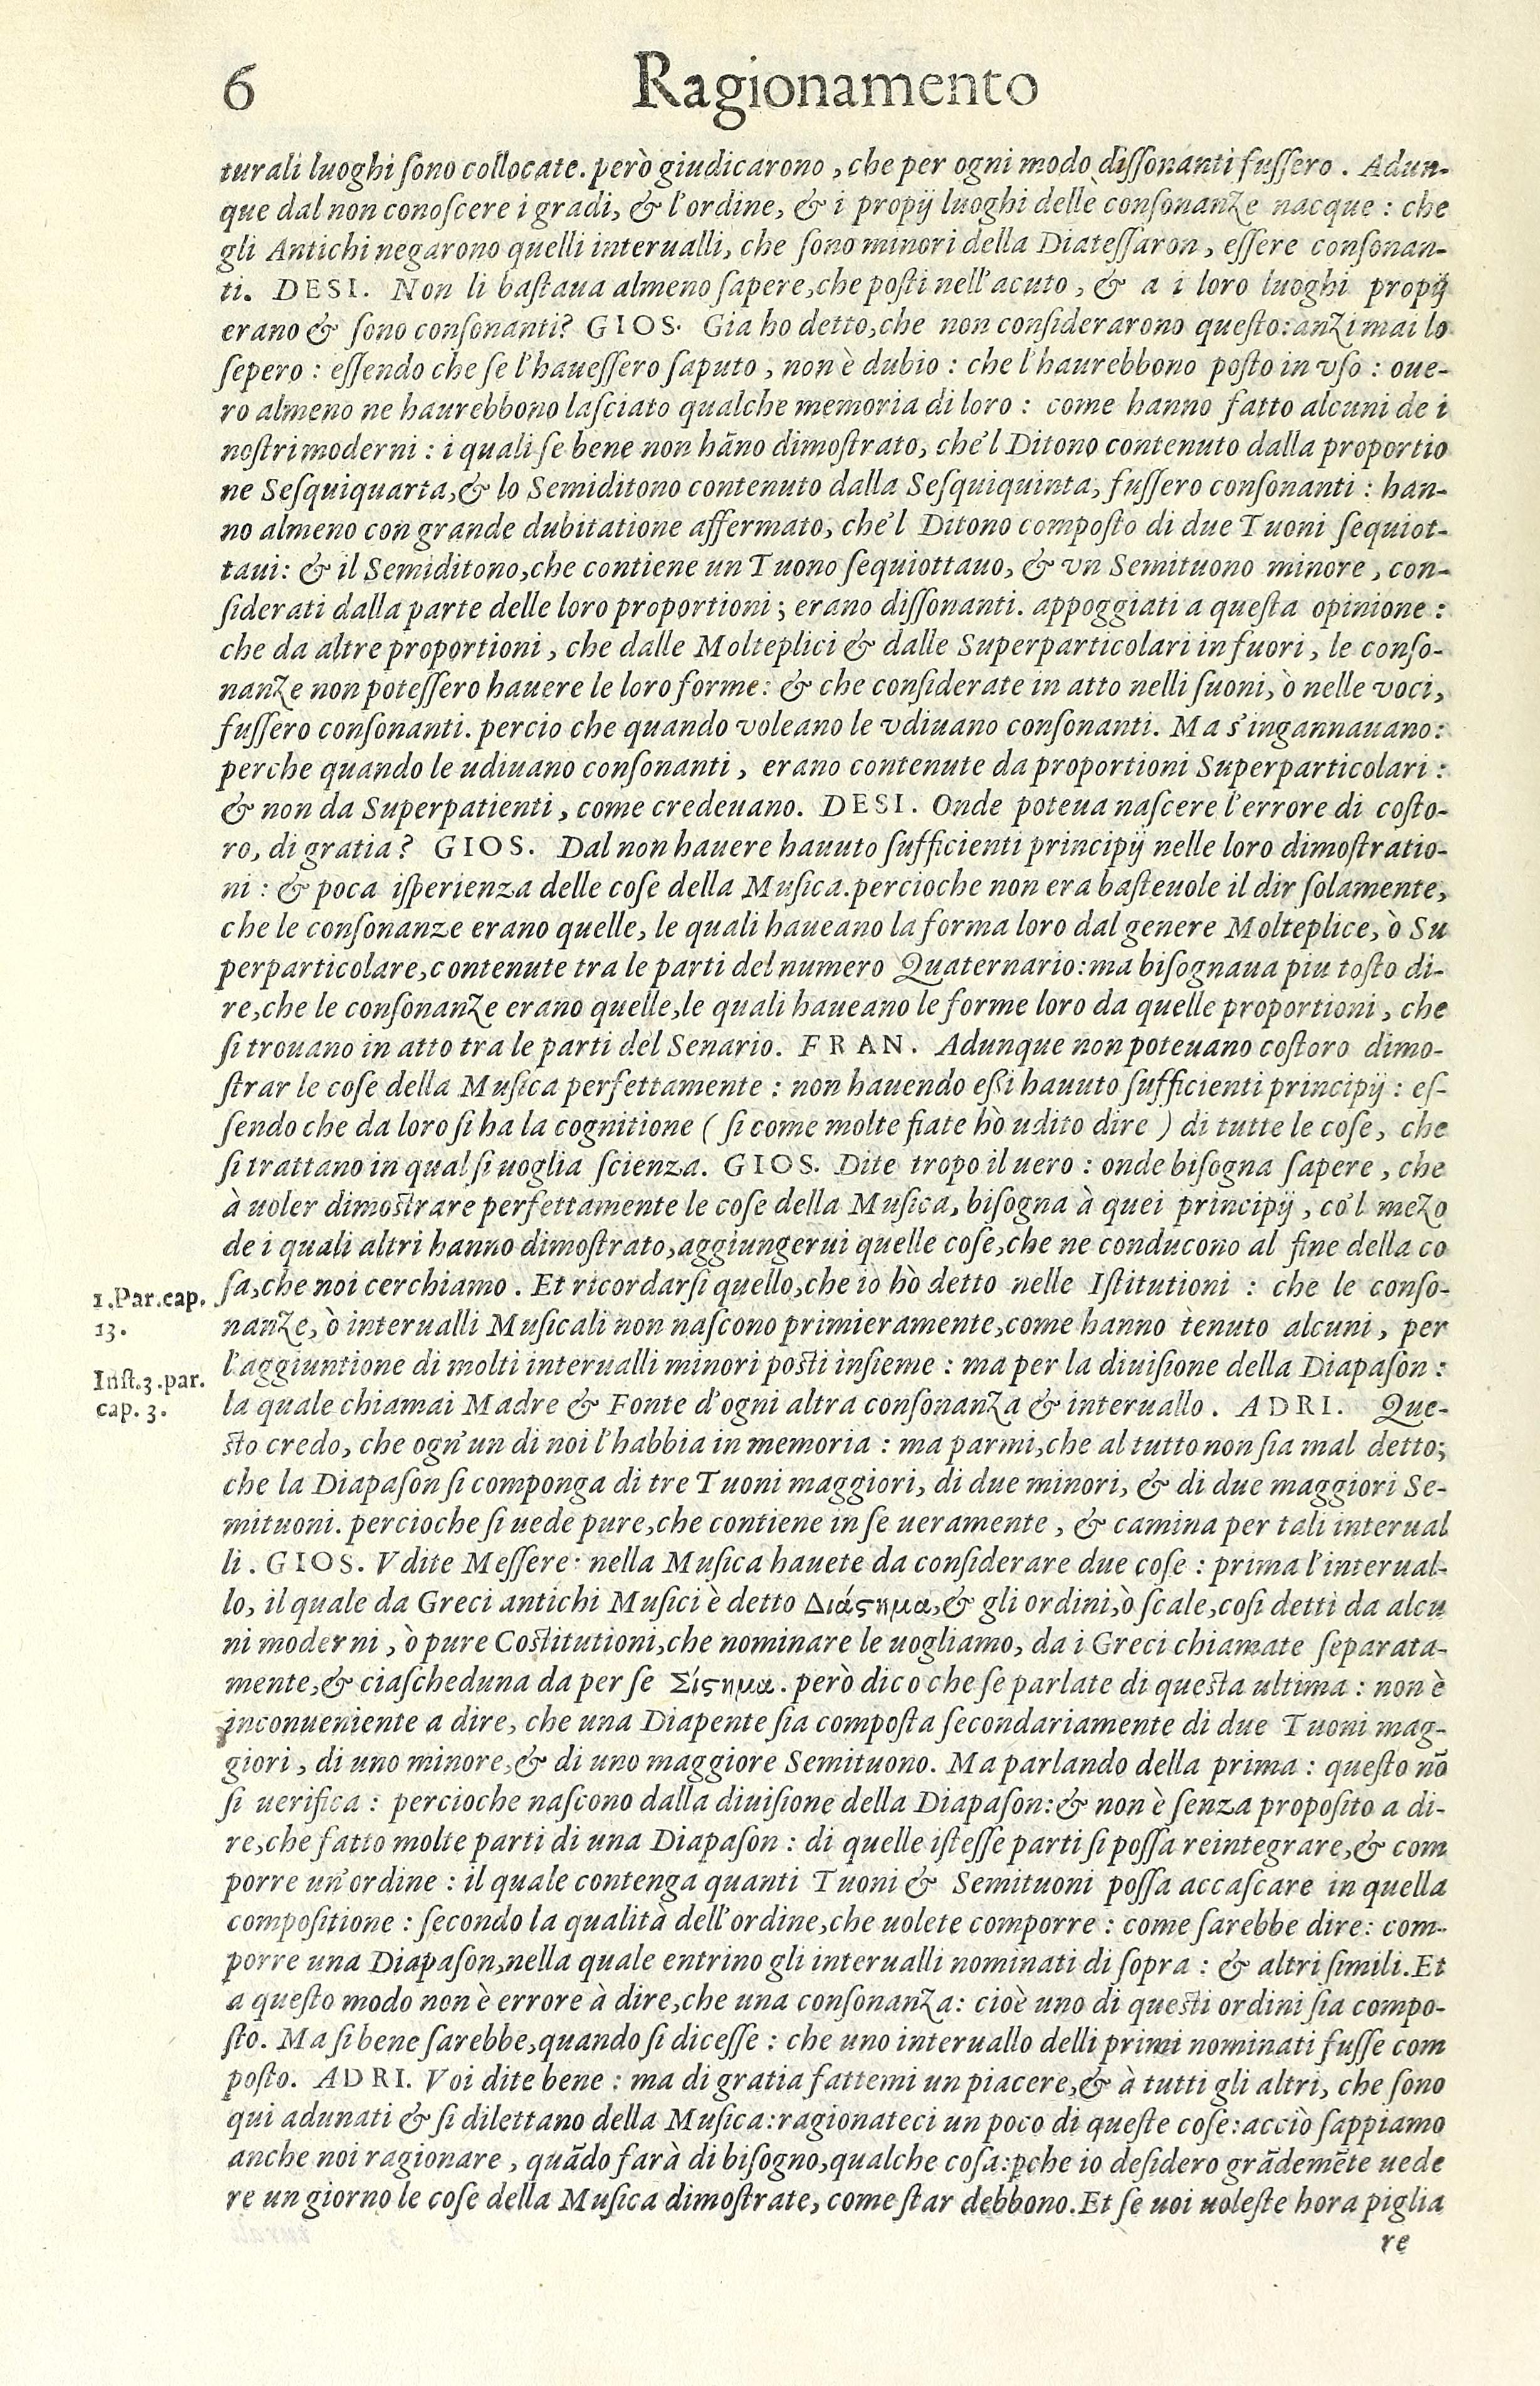 6 Ragionamento
turali luoghi ſono collocate. però giudicarono, che per ogni modo diſſonanti fuſſero. Adun-
que dal non conoſcere i gradi, & l'ordine, & i propij luoghi delle conſonanze nacque: che
gli Antichi negarono quelli interualli, che ſono minori della Diateſſaron, eſſere conſonan-
ti. DESI. Non li baſtaua almeno ſapere, che poſti nell'acuto, & a i loro luoghi propij
erano & ſono conſonanti? GIOS. Gia ho detto, che non conſiderarono queſto: anzi mai lo
ſepero: eſſendo che ſe l'haueſſero ſaputo, non è dubio: che l'haurebbono poſto in vſo: oue-
ro almeno ne haurebbono laſciato qualche memoria di loro: come hanno fatto alcuni de i
noſtri moderni: i quali ſe bene non hāno dimoſtrato, che'l Ditono contenuto dalla proportio
ne Seſquiquarta, & lo Semiditono contenuto dalla Seſquiquinta, fuſſero conſonanti: han-
no almeno con grande dubitatione affermato, che'l Ditono compoſto di due Tuoni ſequiot-
taui: & il Semiditono, che contiene un Tuono ſequiottauo, & vn Semituono minore, con-
ſiderati dalla parte delle loro proportioni; erano diſſonanti. appoggiati a queſta opinione:
che da altre proportioni, che dalle Molteplici & dalle Superparticolari in fuori, le conſo-
nanze non poteſſero hauere le loro forme: & che conſiderate in atto nelli ſuoni, ò nelle voci,
fuſſero conſonanti. percio che quando voleano le vdiuano conſonanti. Ma s'ingannauano:
perche quando le udiuano conſonanti, erano contenute da proportioni Superparticolari:
& non da Superpatienti, come credeuano. DESI. Onde poteua naſcere l'errore di coſto-
ro, di gratia? GIOS. Dal non hauere hauuto ſufficienti principij nelle loro dimoſtratio-
ni: & poca iſperienza delle coſe della Muſica. percioche non era baſteuole il dir ſolamente,
che le conſonanze erano quelle, le quali haueano la forma loro dal genere Molteplice, ò Su
perparticolare, contenute tra le parti del numero Quaternario: ma biſognaua piu toſto di-
re, che le conſonanze erano quelle, le quali haueano le forme loro da quelle proportioni, che
ſi trouano in atto tra le parti del Senario. FRAN. Adunque non poteuano coſtoro dimo-
ſtrar le coſe della Muſica perfettamente: non hauendo eßi hauuto ſufficienti principij: eſ-
ſendo che da loro ſi ha la cognitione (ſi come molte fiate hò udito dire) di tutte le coſe, che
ſi trattano in qual ſi uoglia ſcienza. GIOS. Dite tropo il uero: onde biſogna ſapere, che
à uoler dimoſtrare perfettamente le coſe della Muſica, biſogna à quei principij, co'l mezo
de i quali altri hanno dimoſtrato, aggiungerui quelle coſe, che ne conducono al fine della co
ſa, che noi cerchiamo. Et ricordarſi quello, che io hò detto nelle Iſtitutioni: che le conſo-
1. Par. cap. 13.
nanze, ò interualli Muſicali non naſcono primieramente, come hanno tenuto alcuni, per
l'aggiuntione di molti interualli minori poſti inſieme: ma per la diuiſione della Diapaſon:
Inſt. 3. par. cap. 3.
la quale chiamai Madre & Fonte d'ogni altra conſonanza & interuallo. ADRI. Que-
ſto credo, che ogn'un di noi l'habbia in memoria: ma parmi, che al tutto non ſia mal detto;
che la Diapaſon ſi componga di tre Tuoni maggiori, di due minori, & di due maggiori Se-
mituoni. percioche ſi uede pure, che contiene in ſe ueramente, & camina per tali interual
li. GIOS. Vdite Meſſere: nella Muſica hauete da conſiderare due coſe: prima l'interual-
lo, il quale da Greci antichi Muſici è detto Διάςημα, & gli ordini, ò ſcale, coſi detti da alcu
ni moderni, ò pure Coſtitutioni, che nominare le uogliamo, da i Greci chiamate ſeparata-
mente, & ciaſcheduna da per ſe Σίςημα. però dico che ſe parlate di queſta ultima: non è
inconueniente a dire, che una Diapente ſia compoſta ſecondariamente di due Tuoni mag-
giori, di uno minore, & di uno maggiore Semituono. Ma parlando della prima: queſto nō
ſi uerifica: percioche naſcono dalla diuiſione della Diapaſon: & non è ſenza propoſito a di-
re, che fatto molte parti di una Diapaſon: di quelle iſteſſe parti ſi poſſa reintegrare, & com
porre un'ordine: il quale contenga quanti Tuoni & Semituoni poſſa accaſcare in quella
compoſitione: ſecondo la qualità dell'ordine, che uolete comporre: come ſarebbe dire: com-
porre una Diapaſon, nella quale entrino gli interualli nominati di ſopra: & altri ſimili. Et
a queſto modo non è errore à dire, che una conſonanza: cioè uno di queſti ordini ſia compo-
ſto. Ma ſi bene ſarebbe, quando ſi diceſſe: che uno interuallo delli primi nominati fuſſe com
poſto. ADRI. Voi dite bene: ma di gratia fattemi un piacere, & à tutti gli altri, che ſono
qui adunati & ſi dilettano della Muſica: ragionateci un poco di queſte coſe: acciò ſappiamo
anche noi ragionare, quādo farà di biſogno, qualche coſa: ꝑche io deſidero grādemēte uede
re un giorno le coſe della Muſica dimoſtrate, come ſtar debbono. Et ſe uoi uoleſte hora piglia
re